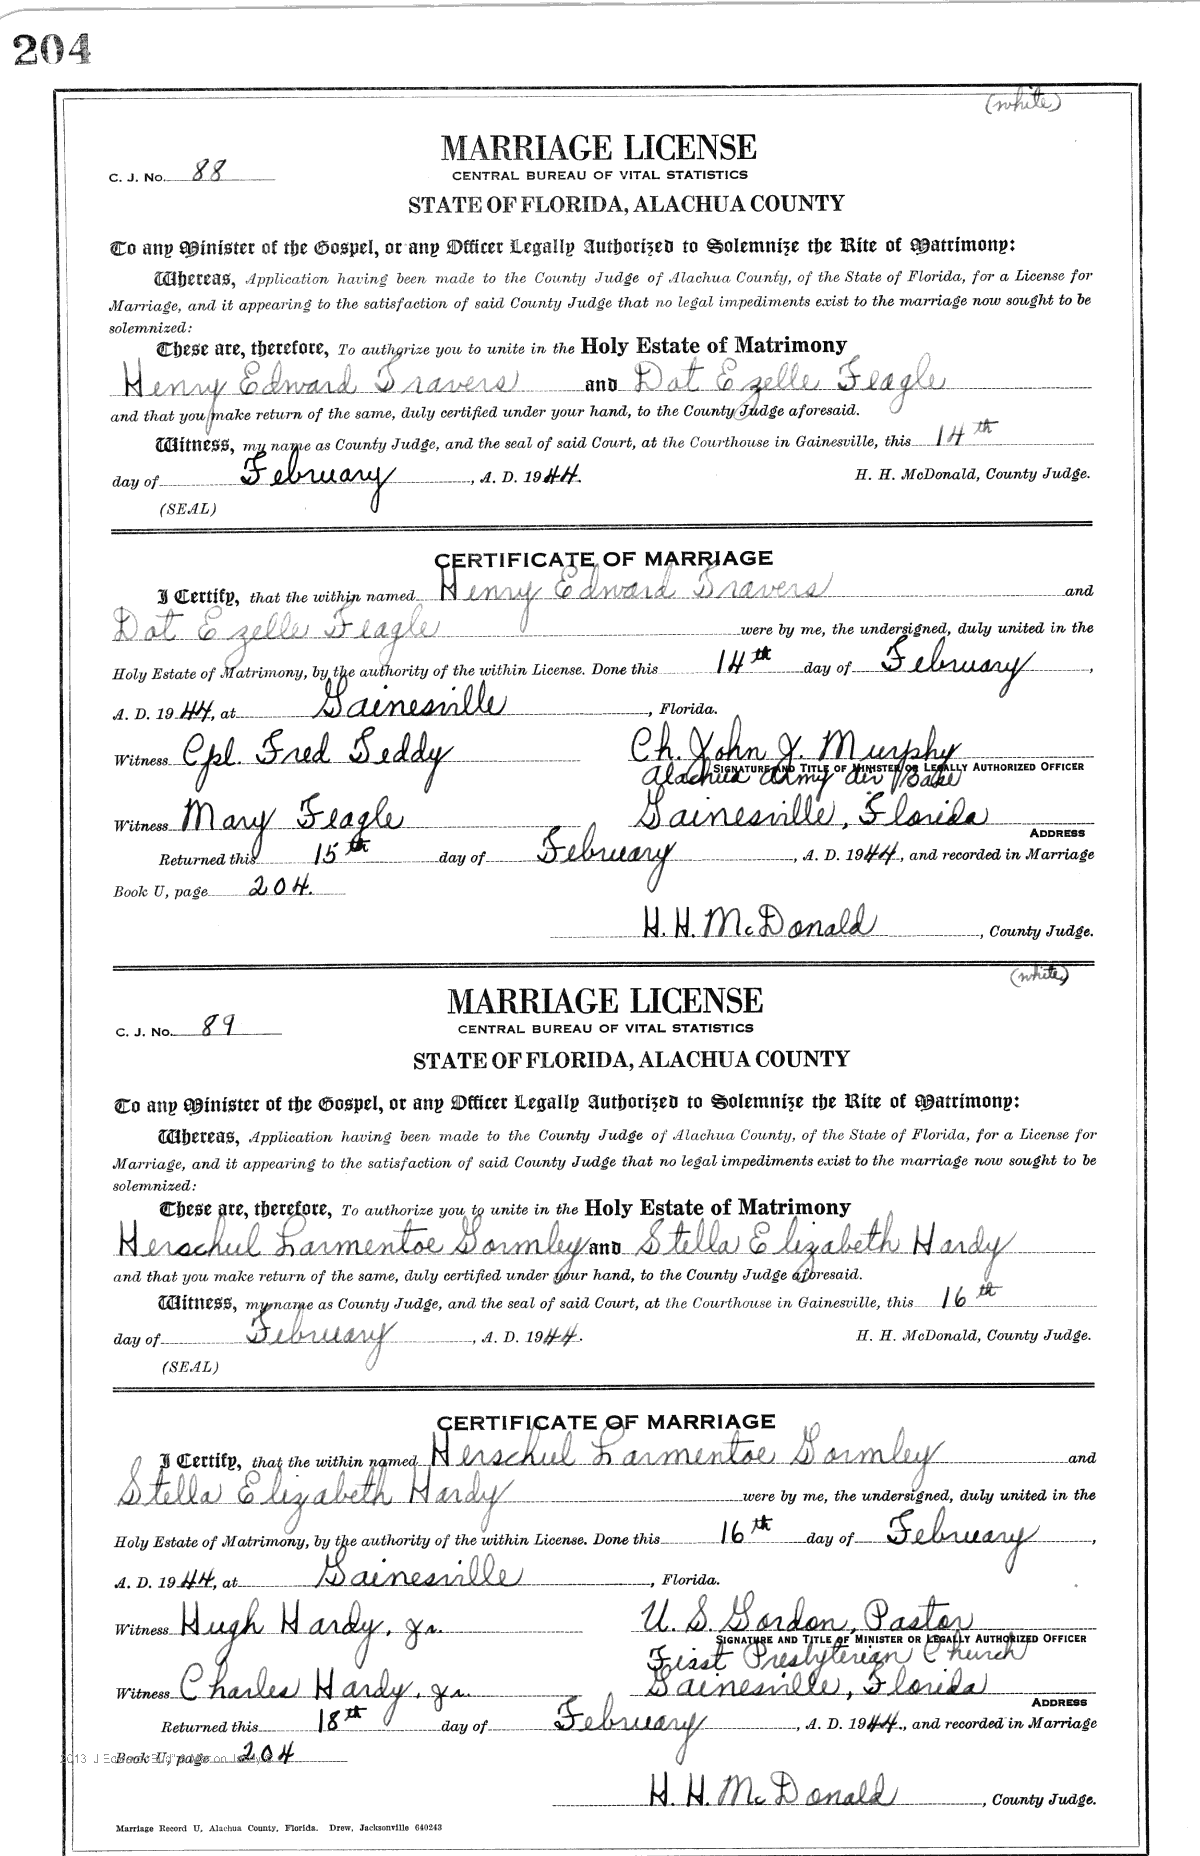 204
(white)
MARRIAGE LICENSE
C. J. No. 88
CENTRAL BUREAU OF VITAL STATISTICS
STATE OF FLORIDA, ALACHUA COUNTY
To any Minister of the Gospel, or any Officer Legally Authorized to Solemnize the Rite of Matrimony:
Whereas, Application having been made to the County Judge of Alachua County, of the State of Florida, for a License for
Marriage, and it appearing to the satisfaction of said County Judge that no legal impediments exist to the marriage now sought to be
solemnized:
These are, therefore, To authorize you to unite in the Holy Estate of Matrimony
Henry Edward Travers and Dot Ezelle Feagle
and that you make return of the same, duly certified under your hand, to the County Judge aforesaid.
Witness, my name as County Judge, and the seal of said Court, at the Courthouse in Gainesville, this 14th
day of February, A. D. 1944. H. H. McDonald, County Judge.
(SEAL)
CERTIFICATE OF MARRIAGE
I Certify, that the within named Henry Edward Travers and
Dot Ezelle Feagle were by me, the undersigned, duly united in the
Holy Estate of Matrimony, by the authority of the within License. Done this 14th day of February,
A. D. 1944, at Gainesville, Florida.
Witness Cpl. Fred Teddy Ch. John J. Murphy
SIGNATURE AND TITLE OF MINISTER OR LEGALLY AUTHORIZED OFFICER
Alachua Army Air Base
Witness Mary Feagle Gainesville, Florida
ADDRESS
Returned this 15th day of February, A. D. 1944, and recorded in Marriage
Book U, page 204.
H. H. McDonald, County Judge.
(white)
MARRIAGE LICENSE
C. J. No. 89
CENTRAL BUREAU OF VITAL STATISTICS
STATE OF FLORIDA, ALACHUA COUNTY
To any Minister of the Gospel, or any Officer Legally Authorized to Solemnize the Rite of Matrimony:
Whereas, Application having been made to the County Judge of Alachua County, of the State of Florida, for a License for
Marriage, and it appearing to the satisfaction of said County Judge that no legal impediments exist to the marriage now sought to be
solemnized:
These are, therefore, To authorize you to unite in the Holy Estate of Matrimony
Herschul Larmentoe Gormley and Stella Elizabeth Hardy
and that you make return of the same, duly certified under your hand, to the County Judge aforesaid.
Witness, my name as County Judge, and the seal of said Court, at the Courthouse in Gainesville, this 16th
day of February, A. D. 1944. H. H. McDonald, County Judge.
(SEAL)
CERTIFICATE OF MARRIAGE
I Certify, that the within named Herschul Larmentoe Gormley and
Stella Elizabeth Hardy were by me, the undersigned, duly united in the
Holy Estate of Matrimony, by the authority of the within License. Done this 16th day of February,
A. D. 1944, at Gainesville, Florida.
Witness Hugh Hardy, Jr. U. S. Gordon, Pastor
SIGNATURE AND TITLE OF MINISTER OR LEGALLY AUTHORIZED OFFICER
First Presbyterian Church
Witness Charles Hardy, Jr. Gainesville, Florida
ADDRESS
Returned this 18th day of February, A. D. 1944, and recorded in Marriage
Book U, page 204
H. H. McDonald, County Judge.
Marriage Record U, Alachua County, Florida. Drew, Jacksonville 640243